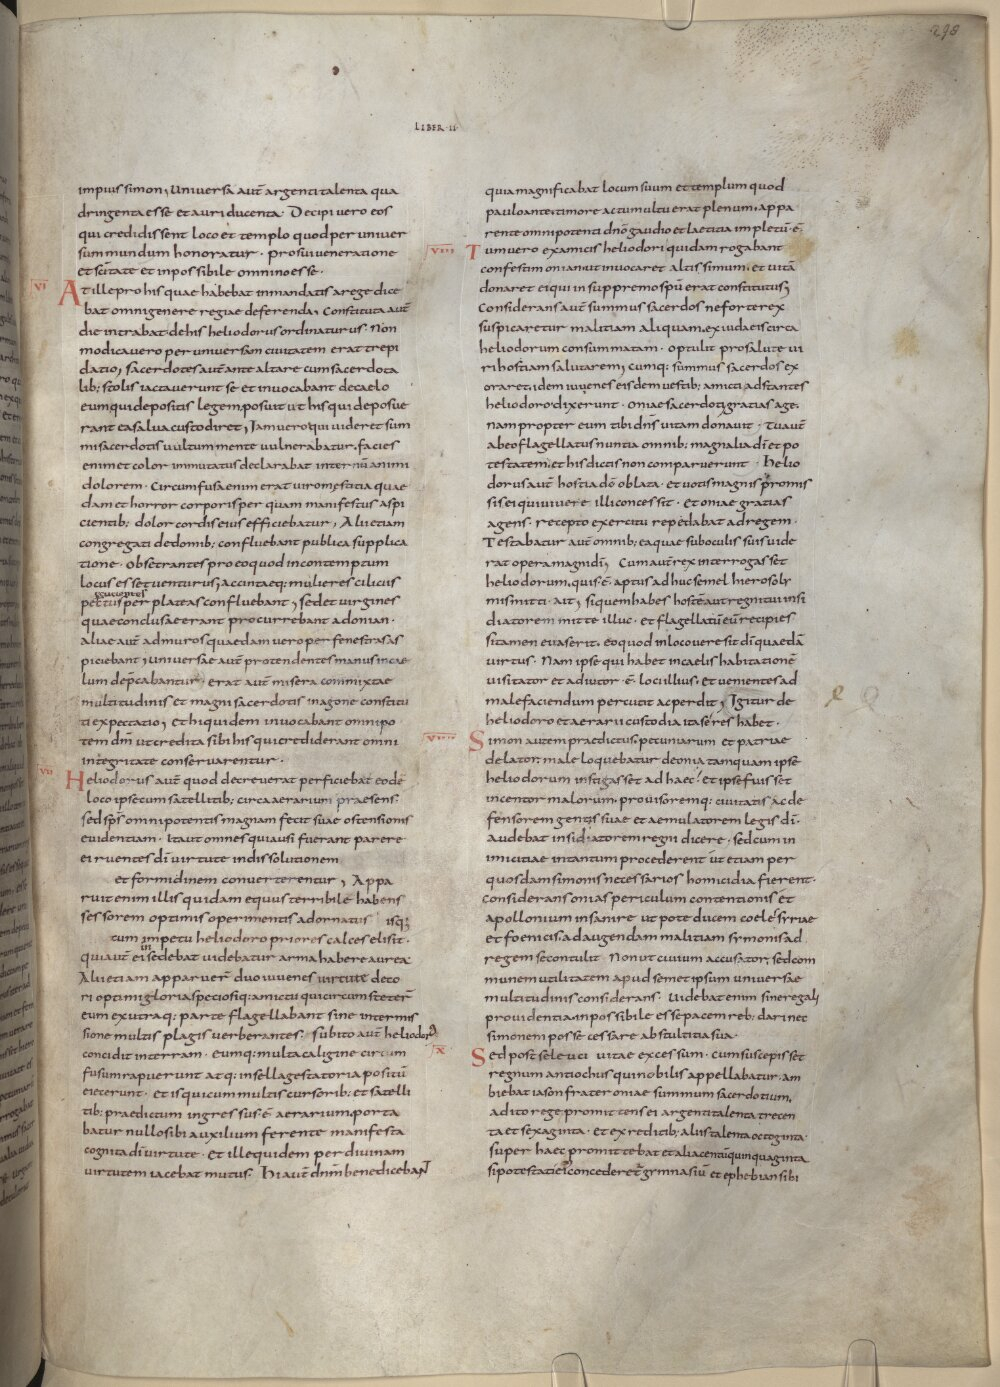 298
LIBER · II ·
impius simon, Universa aut̄ argenti talenta qua
dringenta esse et auri ducenta · Decipi vero eos
qui credidissent loco et templo quod per univer
sum mundum honoratur · pro sui veneratione
et sc̄itate et inpossibile omnino esse ·
VI
At ille pro his quae habebat in mandatis a rege dice
bat omni genere regiae deferenda, Constituta aut̄
die intrabat de his heliodorus ordinaturus · Non
modica vero per universam civitatem erat trepi
datio, sacerdotes aut̄ ante altare cum sacerdota
lib; stolis iactaverunt se et invocabant de caelo
eum qui depositis legem posuit ut his qui deposue
rant ea salva custodiret, Iam vero qui videret sum
mi sacerdotis vultum mente vulnerabatur, facies
enim et color immutatus declarabat internū animi
dolorem · Circumfusa enim erat viro mestitia quae
dam et horror corporis per quam manifestus aspi
cientib; dolor cordis eius efficiebatur, Alii etiam
congregati de domib; confluebant publica supplica
tione · obsecrantes pro eo quod in contemptum
locus esset venturus, accintaeq; mulieres ciliciis
pectus per plateas confluebant, sed et virgines
quae conclusae erant procurrebant ad onian ·
aliae aut̄ ad muros quaedam vero per fenestras as
piciebant, universae aut̄ protendentes manus in cae
lum dep̄cabantur · erat aut̄ misera commixtae
multitudinis et magni sacerdotis in agone constitu
ti expectatio, et hi quidem invocabant omnipo
tem dn̄m ut credita sibi his qui crediderant omni
integritate conservarentur ·
VII
Heliodorus aut̄ quod decreverat perficiebat eodē
loco ipse cum satellitib; circa aerarium praesens ·
sed sp̄s omnipotentis magnam fecit suae ostensionis
evidentiam · Ita ut omnes qui ausi fuerant parere
ei ruentes dī virtute in dissolutionem
et formidinem converterentur, Appa
ruit enim illis quidam equus terribilē habens
sessorem optimis operimentis adornatus isq;
cum impetu heliodoro priores calces elisit ·
qui aut̄ ei insedebat videbatur arma habere aurea
Alii etiam apparuer̄ duo iuvenes virtute deco
ri optimi gloria speciosiq; amictu qui circumsteter̄
eum ex utraq; parte flagellabant sine intermis
sione multis plagis verberantes · Subito aut̄ heliodorꝰ
concidit in terram · eumq; multa caligine circum
fusum rapuerunt atq; in sella gestatoria positū
eiecerunt · et is qui cum multis cursorib; et satelli
tib; praedictum ingressus ē aerarium, porta
batur nullo sibi auxilium ferente manifesta
cognita dī virtute · et ille quidem per divinam
virtutem iacebat mutus · Hi aut̄ dn̄m benedicebant
quia magnificabat locum suum et templum quod
paulo ante timore ac tumultu erat plenum, appa
rente omnipotenti dn̄o gaudio et laetitia impletū ē ·
VIII
Tum vero ex amicis heliodori quidam rogabant
confestim onian ut invocaret altissimum · et vitā
donaret ei qui in suppremo spū erat constitutus;
Considerans aut̄ summus sacerdos ne forte rex
suspicaretur malitiam aliquam, ex iudaeis circa
heliodorum consummatam · optulit pro salute vi
ri hostiam salutarem, cumq; summus sacerdos ex
oraret, idem iuvenes eisdem vestib; amicti adstantes
heliodoro dixerunt · oniae sacerdoti gratias age,
nam propter eum tibi dn̄s vitam donavit · Tu aut̄
ab eo flagellatus nuntia omnib; magnalia dī et po
testatem, et his dictis non comparuerunt · Helio
dorus aut̄ hostia dō oblata · et votis magnis promis
sis ei qui vivere illi concessit · et oniae gratias
agens · recepto exercitu repedabat ad regem ·
Testabatur aut̄ omnib; ea quae sub oculis suis vide
rat opera magni dī, Cum aut̄ rex interrogasset
heliodorum, quis ē · aptus adhuc semel hierosoly
mis mitti · ait, si quem habes hostē aut regni tui insi
diatorem mitte illuc · et flagellatū eū recipies
si tamen evaserit, eo quod in loco vere sit dī quaedā
virtus · Nam ipse qui habet in caelis habitationē
visitator et adiutor ē · loci illius, et venientes ad
male faciendum percutit ac perdit, Igitur de
heliodoro et aerarii custodia ita se res habet ·
VIIII
Simon autem praedictus, pecuniarum et patriae
delator, male loquebatur de onia tamquam ipsē
heliodorum instigasset ad haec · et ipse fuisset
incentor malorum · provisoremq; civitatis ac de
fensorem gentis suae et aemulatorem legis dī ·
Audebat insidiatorem regni dicere · sed cum in
imicitiae in tantum procederent ut etiam per
quosdam simonis necessarios homicidia fierent ·
considerans onias periculum contentionis et
apollonium insanire ut pote ducem coele syriae
et foenicis, ad augendam malitiam symonis ad
regem se contulit · Non ut civium accusator, sed com
munem utilitatem apud semet ipsum universae
multitudinis considerans · Videbat enim sine regali
providentia inpossibile esse pacem reb; dari nec
simonem posse cessare ab stultitia sua ·
X
Sed post seleuci vitae excessum · cum suscepisset
regnum antiochus qui nobilis appellabatur, am
biebat iason frater oniae summum sacerdotium,
adito rege promittens ei argenti talenta trecen
ta et sexaginta · et ex reditib; aliis talenta octoginta ·
super haec promittebat et alia centū quinquaginta
si potestati ei concederet̄ gymnasiū et ephebian sibi